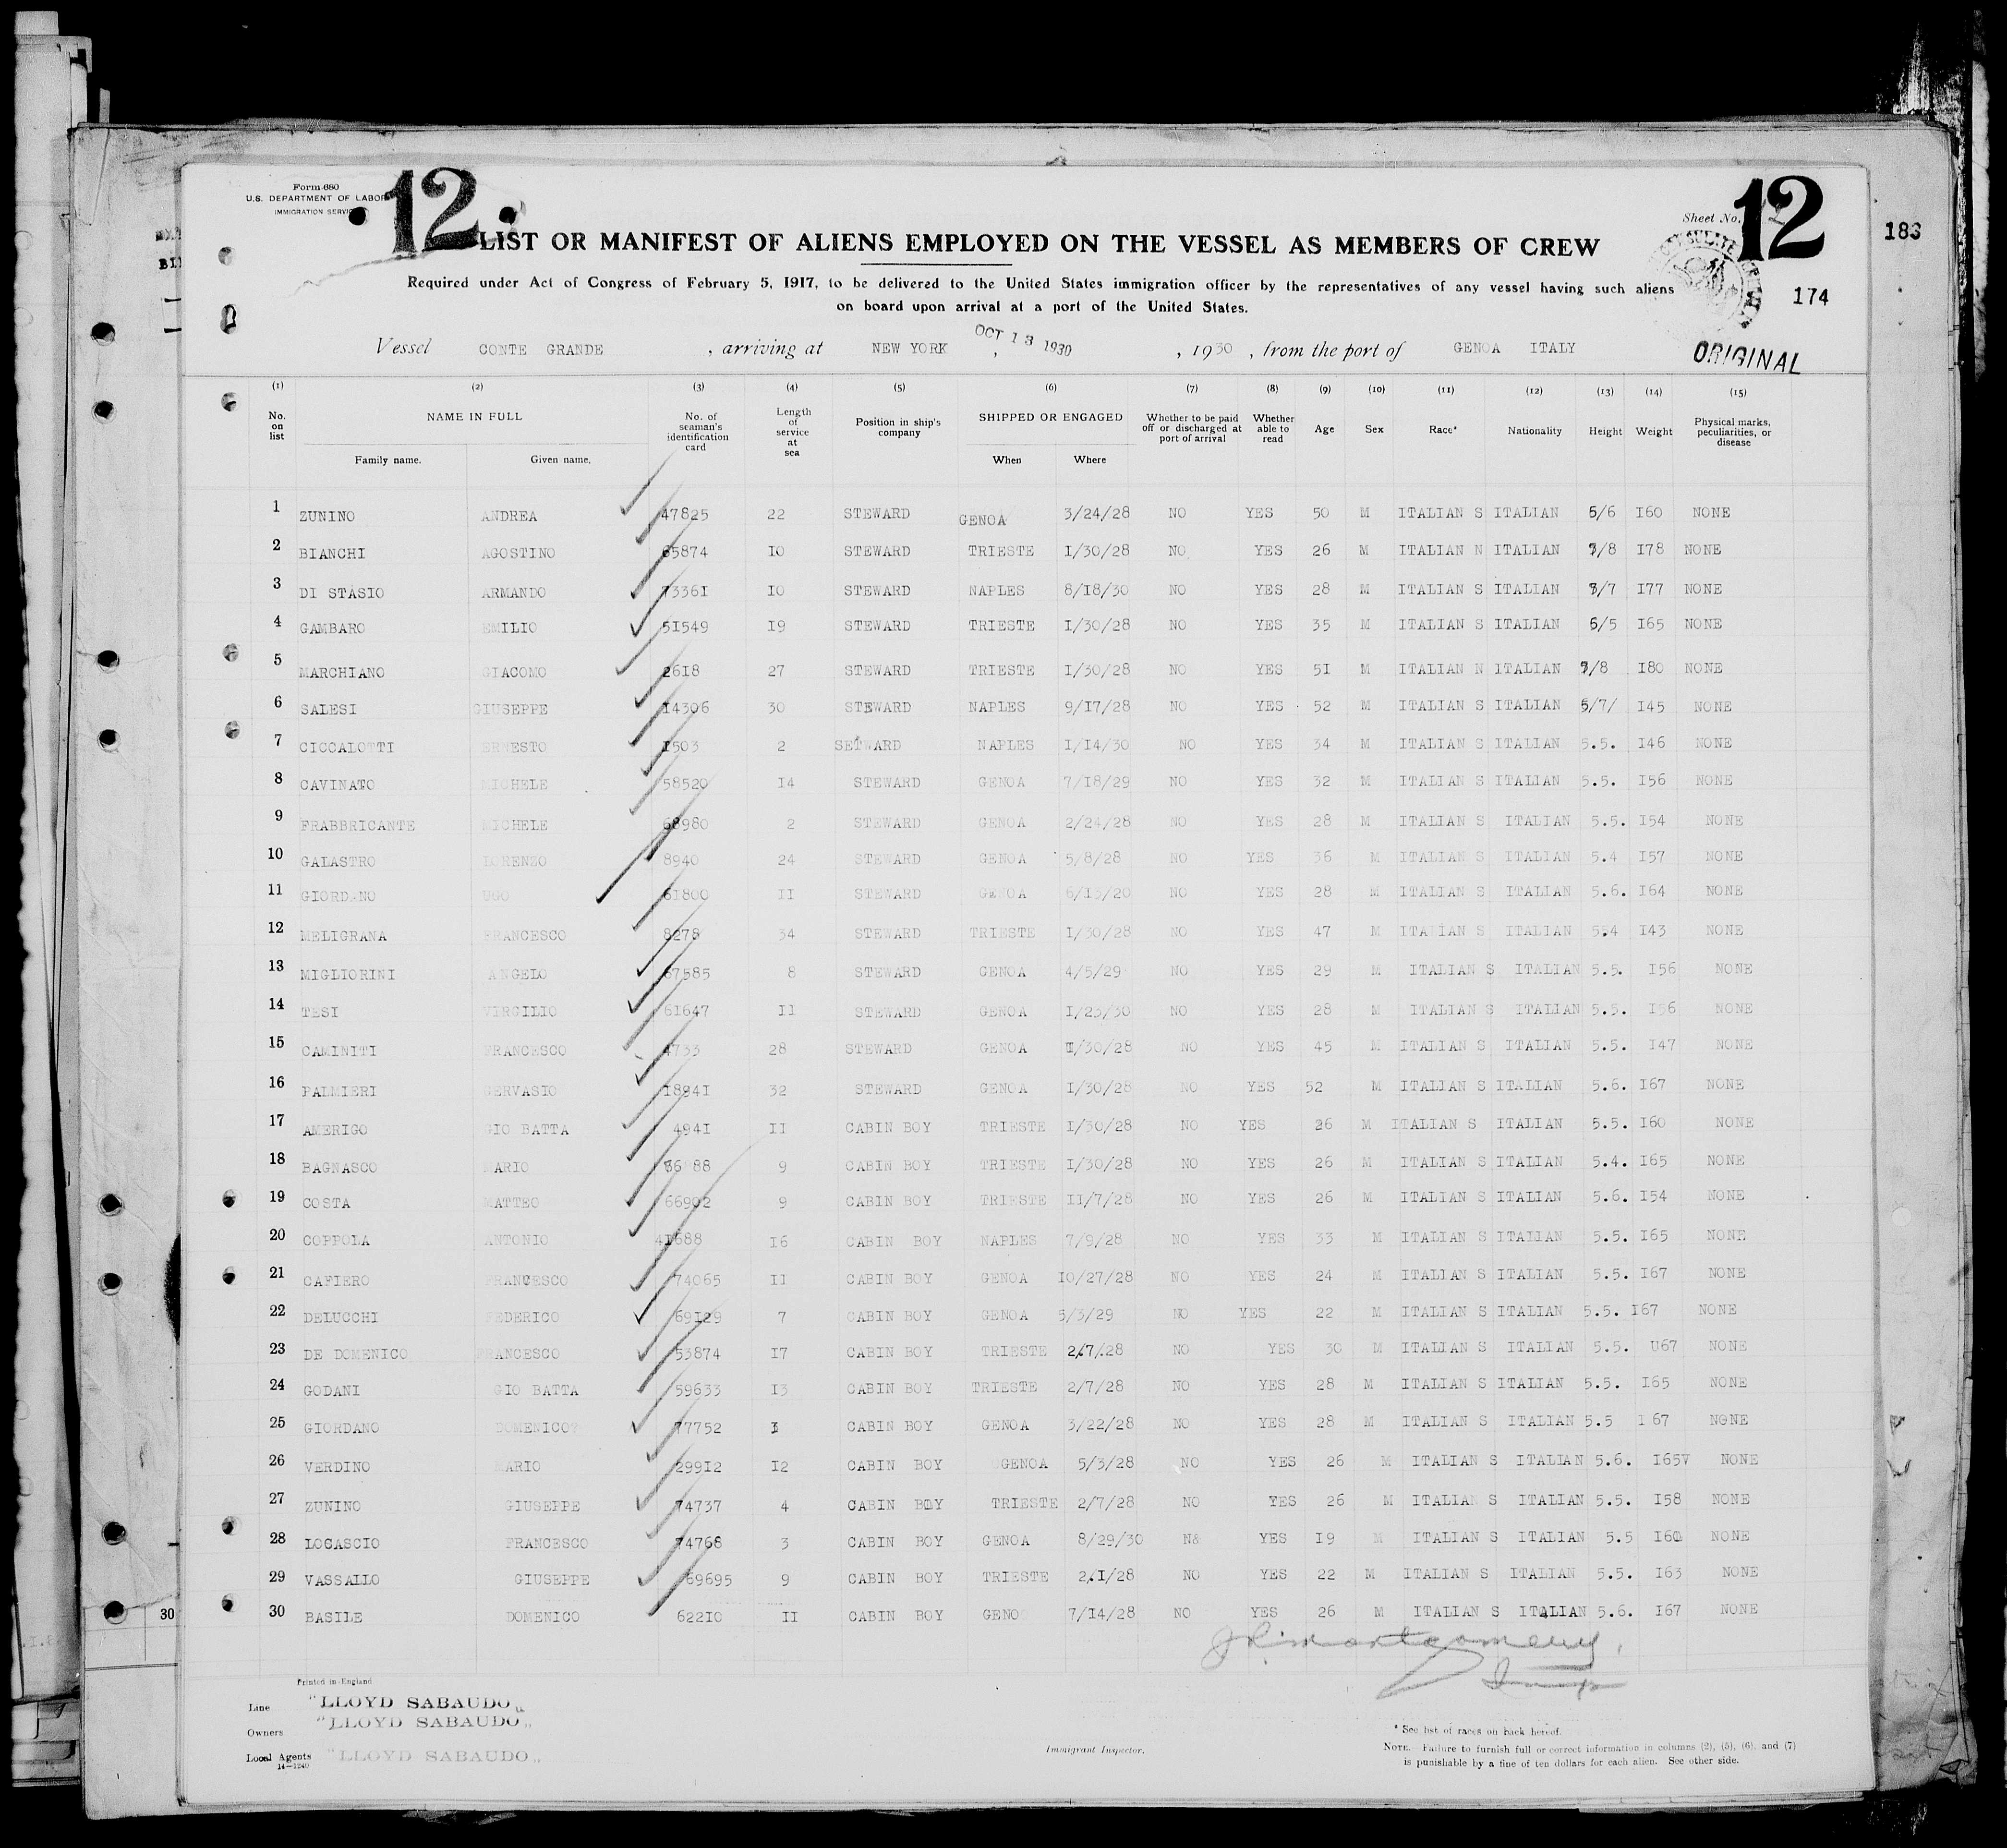 Form 680
U.S. DEPARTMENT OF LABOR
IMMIGRATION SERVICE
12
Sheet No. 12
183
174
LIST OR MANIFEST OF ALIENS EMPLOYED ON THE VESSEL AS MEMBERS OF CREW
Required under Act of Congress of February 5, 1917, to be delivered to the United States immigration officer by the representatives of any vessel having such aliens
on board upon arrival at a port of the United States.
Vessel CONTE GRANDE , arriving at NEW YORK , OCT 13 1930 , 1930 , from the port of GENOA ITALY
ORIGINAL
(1) (2) (3) (4) (5) (6) (7) (8) (9) (10) (11) (12) (13) (14) (15)
No. on list NAME IN FULL No. of seaman's identification card Length of service at sea Position in ship's company SHIPPED OR ENGAGED Whether to be paid off or discharged at port of arrival Whether able to read Age Sex Race* Nationality Height Weight Physical marks, peculiarities, or disease
Family name. Given name. When Where
1 ZUNINO ANDREA 47825 22 STEWARD GENOA 3/24/28 NO YES 50 M ITALIAN S ITALIAN 5/6 I60 NONE
2 BIANCHI AGOSTINO 65874 I0 STEWARD TRIESTE I/30/28 NO YES 26 M ITALIAN N ITALIAN /8 I78 NONE
3 DI STASIO ARMANDO 7336I I0 STEWARD NAPLES 8/I8/30 NO YES 28 M ITALIAN S ITALIAN /7 I77 NONE
4 GAMBARO EMILIO 5I549 I9 STEWARD TRIESTE I/30/28 NO YES 35 M ITALIAN S ITALIAN 6/5 I65 NONE
5 MARCHIANO GIACOMO 26I8 27 STEWARD TRIESTE I/30/28 NO YES 5I M ITALIAN N ITALIAN /8 I80 NONE
6 SALESI GIUSEPPE I4306 30 STEWARD NAPLES 9/I7/28 NO YES 52 M ITALIAN S ITALIAN 5/7/ I45 NONE
7 CICCALOTTI ERNESTO I503 2 SETWARD NAPLES I/I4/30 NO YES 34 M ITALIAN S ITALIAN 5.5. I46 NONE
8 CAVINATO MICHELE 58520 I4 STEWARD GENOA 7/I8/29 NO YES 32 M ITALIAN S ITALIAN 5.5. I56 NONE
9 FRABBRICANTE MICHELE 68980 2 STEWARD GENOA 2/24/28 NO YES 28 M ITALIAN S ITALIAN 5.5. I54 NONE
10 GALASTRO LORENZO 8940 24 STEWARD GENOA 5/8/28 NO YES 36 M ITALIAN S ITALIAN 5.4 I57 NONE
11 GIORDANO UGO 6I800 II STEWARD GENOA 6/I5/20 NO YES 28 M ITALIAN S ITALIAN 5.6. I64 NONE
12 MELIGRANA FRANCESCO 8278 34 STEWARD TRIESTE I/30/28 NO YES 47 M ITALIAN S ITALIAN 5.4 I43 NONE
13 MIGLIORINI ANGELO 67585 8 STEWARD GENOA 4/5/29 NO YES 29 M ITALIAN S ITALIAN 5.5. I56 NONE
14 TESI VIRGILIO 6I647 II STEWARD GENOA I/23/30 NO YES 28 M ITALIAN S ITALIAN 5.5. I56 NONE
15 CAMINITI FRANCESCO 4733 28 STEWARD GENOA /30/28 NO YES 45 M ITALIAN S ITALIAN 5.5. I47 NONE
16 PALMIERI GERVASIO I894I 32 STEWARD GENOA I/30/28 NO YES 52 M ITALIAN S ITALIAN 5.6. I67 NONE
17 AMERIGO GIO BATTA 494I II CABIN BOY TRIESTE I/30/28 NO YES 26 M ITALIAN S ITALIAN 5.5. I60 NONE
18 BAGNASCO MARIO 88 9 CABIN BOY TRIESTE I/30/28 NO YES 26 M ITALIAN S ITALIAN 5.4. I65 NONE
19 COSTA MATTEO 66902 9 CABIN BOY TRIESTE II/7/28 NO YES 26 M ITALIAN S ITALIAN 5.6. I54 NONE
20 COPPOLA ANTONIO 4I688 I6 CABIN BOY NAPLES 7/9/28 NO YES 33 M ITALIAN S ITALIAN 5.5. I65 NONE
21 CAFIERO FRANCESCO 74065 II CABIN BOY GENOA I0/27/28 NO YES 24 M ITALIAN S ITALIAN 5.5. I67 NONE
22 DELUCCHI FEDERICO 69I29 7 CABIN BOY GENOA 5/3/29 NO YES 22 M ITALIAN S ITALIAN 5.5. I67 NONE
23 DE DOMENICO FRANCESCO 53874 I7 CABIN BOY TRIESTE 2/7/28 NO YES 30 M ITALIAN S ITALIAN 5.5. U67 NONE
24 GODANI GIO BATTA 59633 I3 CABIN BOY TRIESTE 2/7/28 NO YES 28 M ITALIAN S ITALIAN 5.5. I65 NONE
25 GIORDANO DOMENICO 77752 3 CABIN BOY GENOA 3/22/28 NO YES 28 M ITALIAN S ITALIAN 5.5 I67 NONE
26 VERDINO MARIO 299I2 I2 CABIN BOY GENOA 5/3/28 NO YES 26 M ITALIAN S ITALIAN 5.6. I65V NONE
27 ZUNINO GIUSEPPE 74737 4 CABIN BOY TRIESTE 2/7/28 NO YES 26 M ITALIAN S ITALIAN 5.5. I58 NONE
28 LOCASCIO FRANCESCO 74768 3 CABIN BOY GENOA 8/29/30 N& YES I9 M ITALIAN S ITALIAN 5.5 I60 NONE
29 VASSALLO GIUSEPPE 69695 9 CABIN BOY TRIESTE 2/I/28 NO YES 22 M ITALIAN S ITALIAN 5.5. I63 NONE
30 BASILE DOMENICO 622I0 II CABIN BOY GENO 7/I4/28 NO YES 26 M ITALIAN S ITALIAN 5.6. I67 NONE
30
Montgomery
Insp
Printed in England
Line "LLOYD SABAUDO"
Owners "LLOYD SABAUDO"
Local Agents "LLOYD SABAUDO"
14—1240
Immigrant Inspector.
* See list of races on back hereof.
NOTE.—Failure to furnish full or correct information in columns (2), (5), (6), and (7)
is punishable by a fine of ten dollars for each alien. See other side.